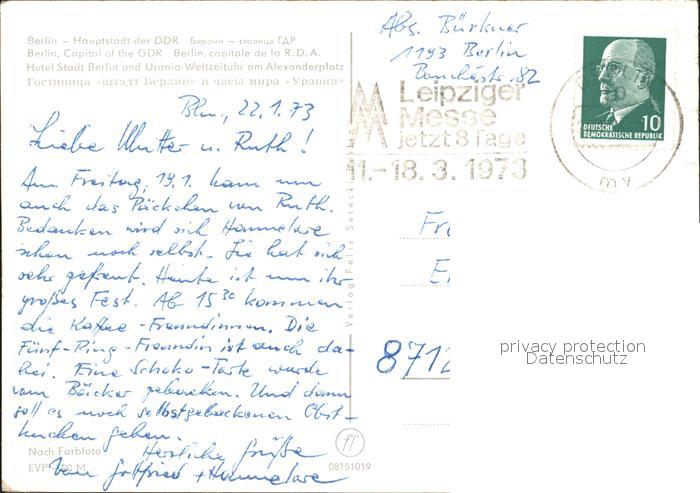 Berlin – Hauptstadt der DDR Берлин – столица ГДР
Berlin, Capital of the GDR Berlin, capitale de la R.D.A.
Hotel Stadt Berlin und Urania-Weltzeituhr am Alexanderplatz
Гостиница «штадт Берлин» и часы мира «Урания»
Bln., 22.1.73
Liebe Mutter u. Ruth!
Am Freitag, 19.1. kam nun
auch das Päckchen von Ruth.
Bedanken wird sich Hannelore
schon noch selbst. Sie hat sich
sehr gefreut. Heute ist nun ihr
großes Fest. Ab 15³⁰ kommen
die Kaffee-Freundinnen. Die
Fünf-Ring-Freundin ist auch da-
bei. Eine Schoko-Torte wurde
vom Bäcker gebacken. Und dann
soll es noch selbstgebackenen Obst-
kuchen geben.
Herzliche Grüße
von Gottfried + Hannelore
Nach Farbfoto
EVP M
08151019
Verlag Felix Setecki
Abs. Bürkner
1193 Berlin
82
Leipziger
Messe
jetzt 8 Tage
11.-18.3.1973
DEUTSCHE
DEMOKRATISCHE REPUBLIK
10
my
Fr
E
8712
privacy protection
Datenschutz